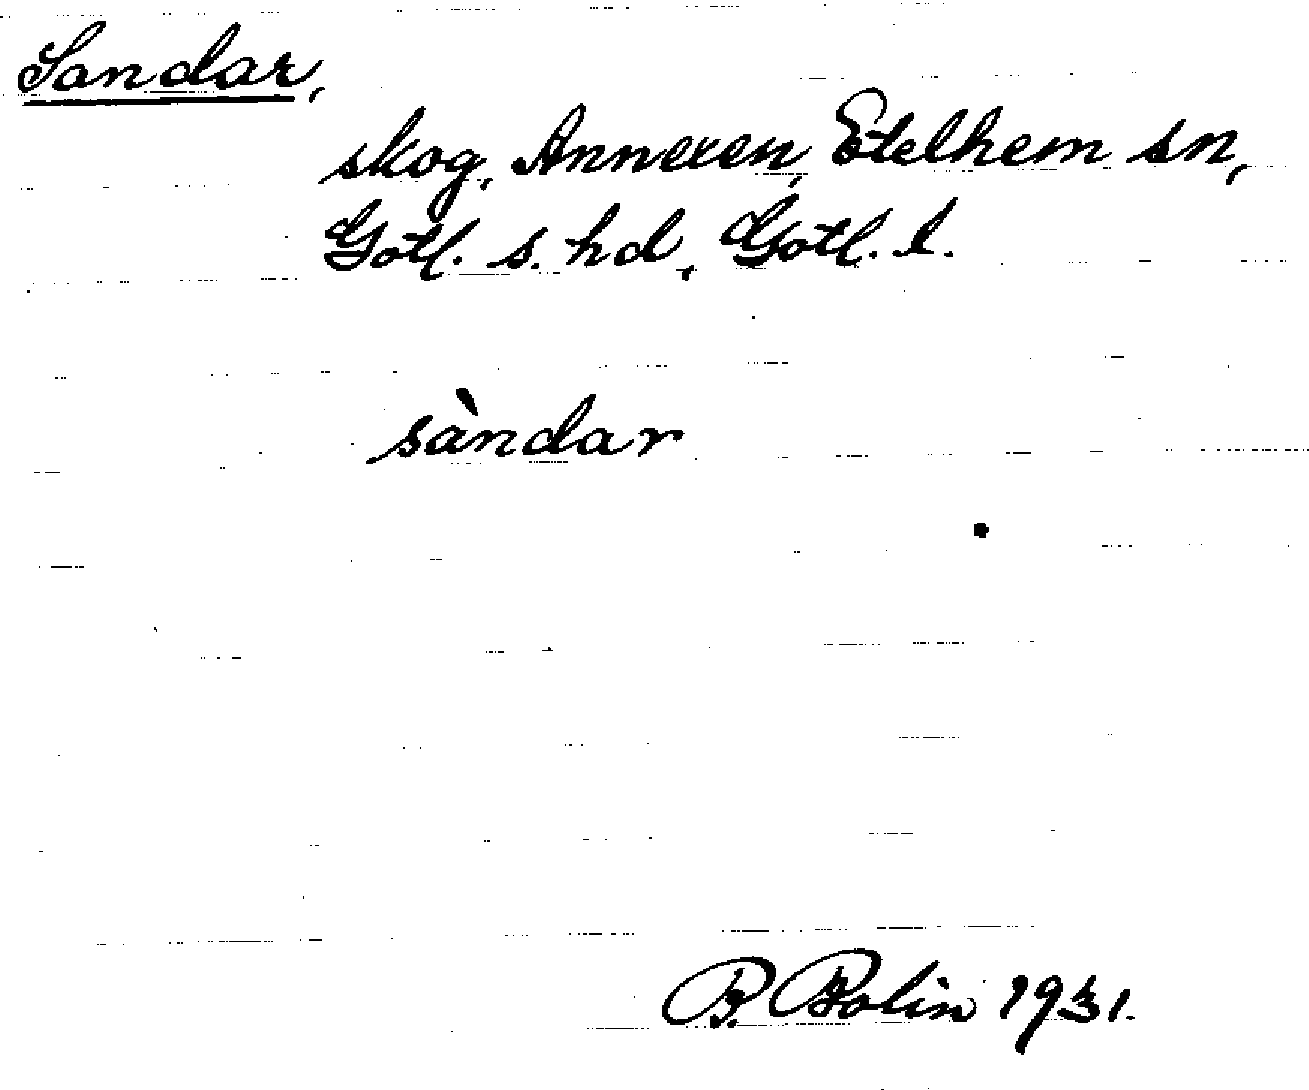 Sandar,
skog, Annexen, Etelhem sn,
Gotl. s. hd, Gotl. l.
sàndar
B. Bolin 1931.